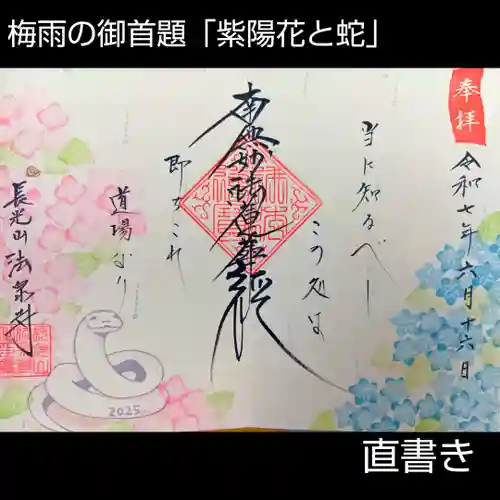 梅雨の御首題「紫陽花と蛇」
奉拝
令和七年六月十六日
当に知るべし
この処は
南無妙法蓮華経
即ちこれ
道場なり
長光山 法泉寺
2025
直書き